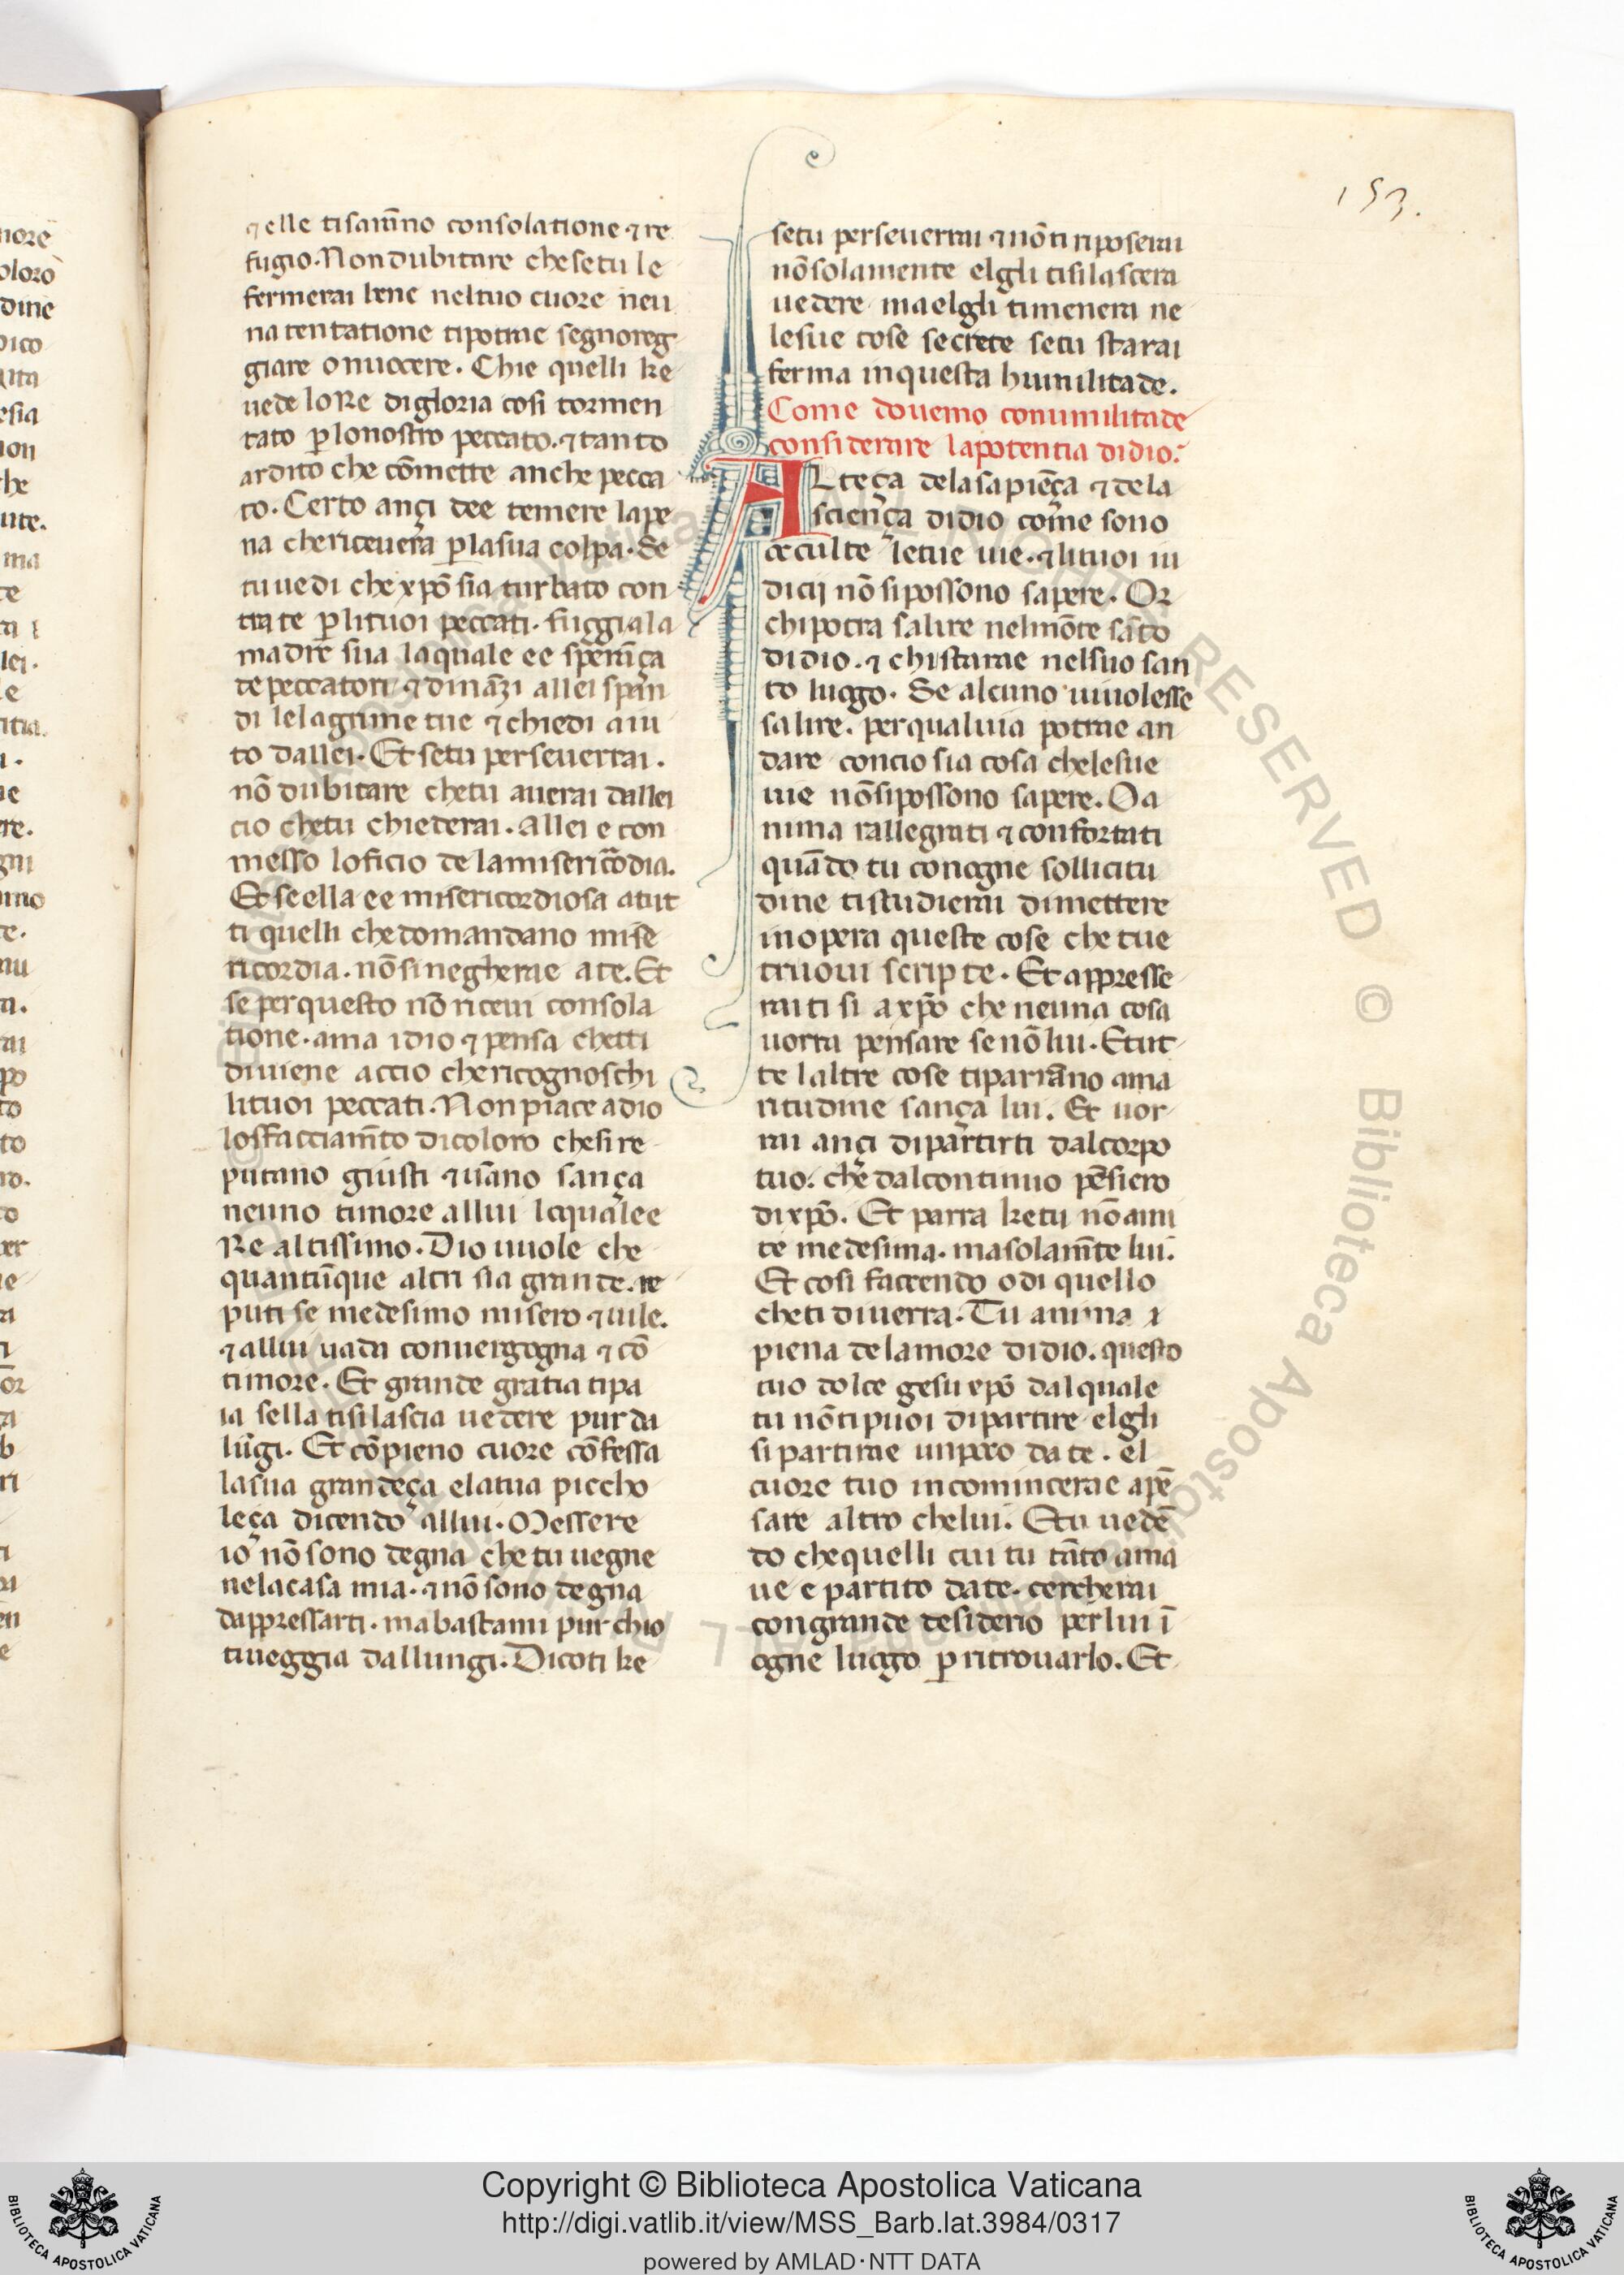 153.
⁊ elle ti sarāno consolatione ⁊ re
fugio. Non dubitare che se tu le
fermerai bene nel tuo cuore neu
na tentatione ti potrae segnoreg
giare o nuocere. Chi e quelli ke
uede lo Re di gloria cosi tormen
tato ꝑ lo nostro peccato. ⁊ tanto
ardito che cōmette anche pecca
to. Certo ançi dee temere la pe
na che riceuera ꝑ la sua colpa. Se
tu uedi che xp̄o sia turbato con
tra te ꝑ li tuoi peccati. fuggi a la
madre sua la quale ee sperāça
de peccatori ⁊ dināzi a llei span
di le lagrime tue ⁊ chiedi aiu
to da llei. Et se tu perseuerrai.
nō dubitare che tu auerai da llei
cio che tu chiederai. A llei e con
messo l oficio de la misericōdia.
Et se ella ee misericordiosa a tut
ti quelli che domandano mise
ricordia. nō si negherae a te. Et
se per questo nō riceui consola
tione. ama idio ⁊ pensa che tti
diuiene a ccio che ricognoschi
li tuoi peccati. Non piace a dio
lo sfacciamēto di coloro che si re
putano giusti ⁊ uāno sança
neuno timore a llui lo quale e
Re altissimo. Dio uuole che
quantūque altri sia grande. re
puti se medesimo misero ⁊ uile.
⁊ a llui uada con uergogna ⁊ cō
timore. Et grande gratia ti pa
ia s ella ti si lascia uedere pur da
lūgi. Et cō pieno cuore cōfessa
la sua grandeça e la tua piccho
leça dicendo a llui. Messere
io nō sono degna che tu uegne
ne la casa mia. ⁊ nō sono degna
d appressarti. ma bastami pur ch io
ti ueggia da llungi. Dicoti ke
se tu perseuerrai ⁊ nō ti riposerai
nō solamente elgli ti si lascera
uedere ma elgli ti menera ne
le sue cose secrete se tu starai
ferma in questa humilitade.
Come douemo con umilitade
considerare la potentia di dio.
ALteça de la sapiēça ⁊ de la
sciença di dio come sono
occulte le tue uie. ⁊ li tuoi iu
dicij nō si possono sapere. Or
chi potra salire nel mōte sāto
di dio. ⁊ chi starae nel suo san
to luogo. Se alcuno ui uolesse
salire. per qual uia potrae an
dare concio sia cosa che le sue
uie nō si possono sapere. O a
nima rallegrati ⁊ confortati
quādo tu con ogne sollicitu
dine ti studierai di mettere
in opera queste cose che tue
truoui scripte. Et appresse
raiti si a xp̄o che neuna cosa
uorra pensare se nō lui. E tut
te l altre cose ti parrāno ama
ritudine sança lui. Et uor
rai ançi dipartirti dal corpo
tuo. che dal continuo pēsiero
di xp̄o. Et parra ke tu nō ami
te medesima. ma solamēte lui.
Et cosi faccendo odi quello
che ti diuerra. Tu anima ⁊
piena de l amore di dio. questo
tuo dolce gesu xp̄o dal quale
tu nō ti puoi dipartire elgli
si partirae un poco da te. el
cuore tuo incomincerae a pē
sare altro che lui. E tu uedē
do che quelli cui tu tāto ama
ue e partito da te. cercherai
con grande desiderio per lui ī
ogne luogo ꝑ ritrouarlo. Et
Copyright © Biblioteca Apostolica Vaticana
http://digi.vatlib.it/view/MSS_Barb.lat.3984/0317
powered by AMLAD·NTT DATA
BIBLIOTECA APOSTOLICA VATICANA
BIBLIOTECA APOSTOLICA VATICANA